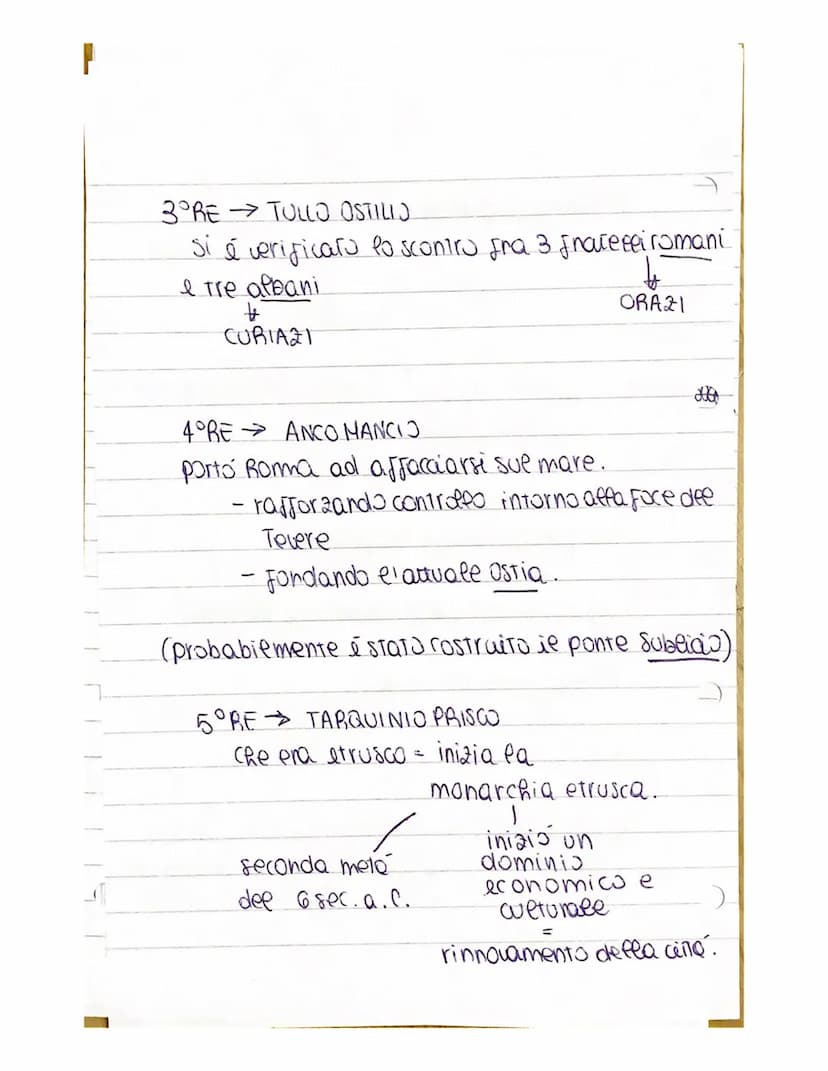 3° RE → TULLO OSTILIO
si é verificato lo scontro fra 3 fratelli romani
e tre albani
ORAZI
CURIAZI
4° RE → ANCO MANCIO
portó Roma ad affacciarsi sul mare.
- rafforzando controllo intorno alla foce del
Tevere
- fondando l'attuale Ostia.
(probabilmente é stato costruito il ponte Sublicio)
5° RE → TARQUINIO PRISCO
che era etrusco = inizia la
monarchia etrusca.
inizió un
seconda metá
dominio
del 6 sec. a.C.
economico e
culturale
=
rinnovamento della cittá.